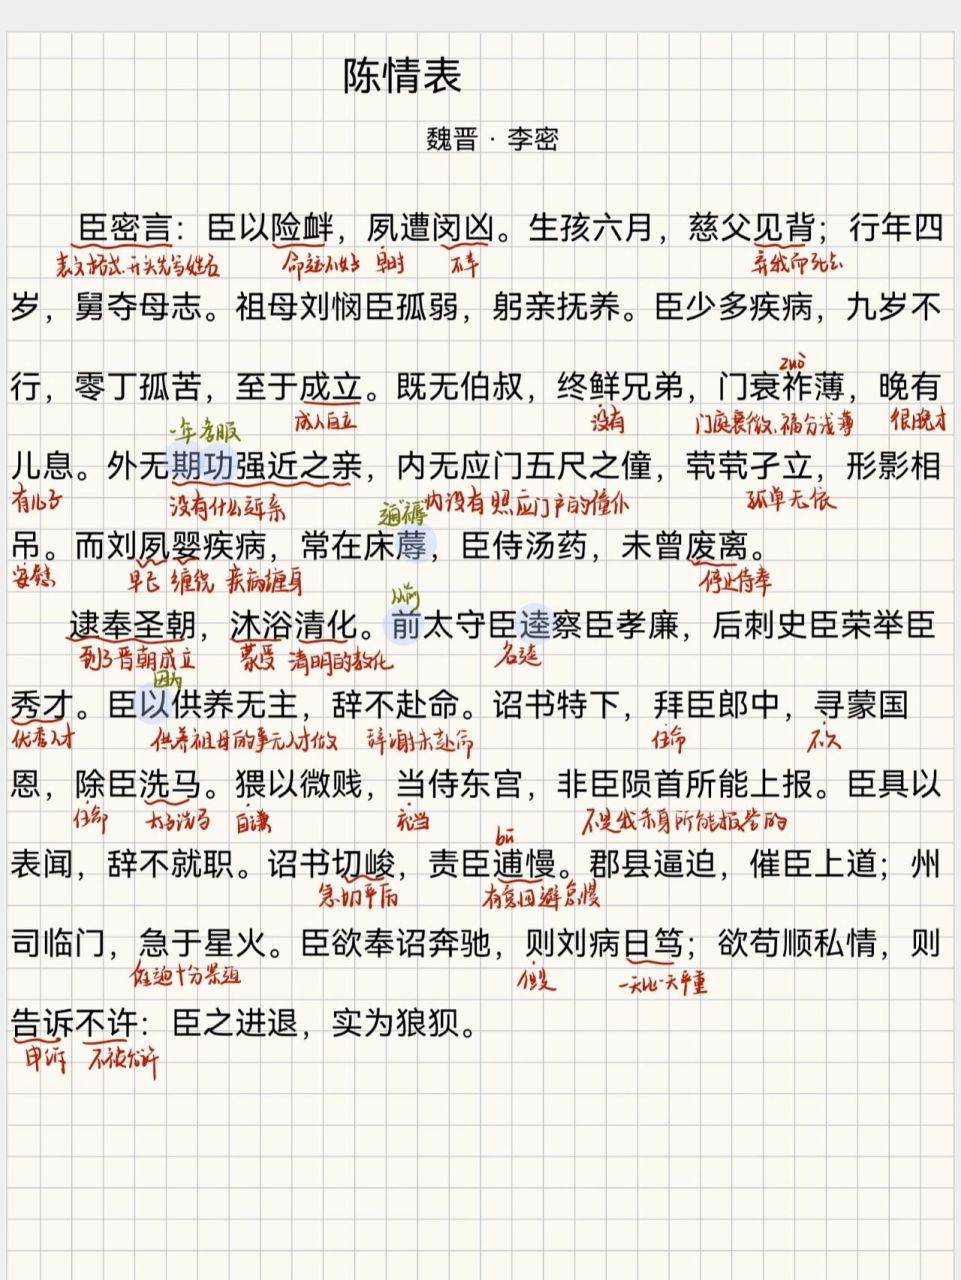 陈情表
魏晋 · 李密
臣密言：臣以险衅，夙遭闵凶。生孩六月，慈父见背；行年四
表文格式、开头先写姓名 命运不好 早时 不幸 弃我而死去
岁，舅夺母志。祖母刘悯臣孤弱，躬亲抚养。臣少多疾病，九岁不
zuò
行，零丁孤苦，至于成立。既无伯叔，终鲜兄弟，门衰祚薄，晚有
成人自立 没有 门庭衰微、福分浅薄 很晚才
一年孝服
儿息。外无期功强近之亲，内无应门五尺之僮，茕茕孑立，形影相
有儿子 没有什么近亲 内没有照应门户的僮仆 孤单无依
通“褥”
吊。而刘夙婴疾病，常在床蓐，臣侍汤药，未曾废离。
安慰 早已 缠绕 疾病缠身 停止侍奉
从前
逮奉圣朝，沐浴清化。前太守臣逵察臣孝廉，后刺史臣荣举臣
到了晋朝成立 蒙受 清明的教化 名逵
因为
秀才。臣以供养无主，辞不赴命。诏书特下，拜臣郎中，寻蒙国
优秀人才 供养祖母的事无人才做 辞谢未赴命 任命 不久
恩，除臣洗马。猥以微贱，当侍东宫，非臣陨首所能上报。臣具以
任命 太子洗马 自谦 充当 不是我杀身所能报答的
bū
表闻，辞不就职。诏书切峻，责臣逋慢。郡县逼迫，催臣上道；州
急切严厉 有意回避怠慢
司临门，急于星火。臣欲奉诏奔驰，则刘病日笃；欲苟顺私情，则
催迫十分紧迫 一天比一天严重
告诉不许：臣之进退，实为狼狈。
申诉 不被允许